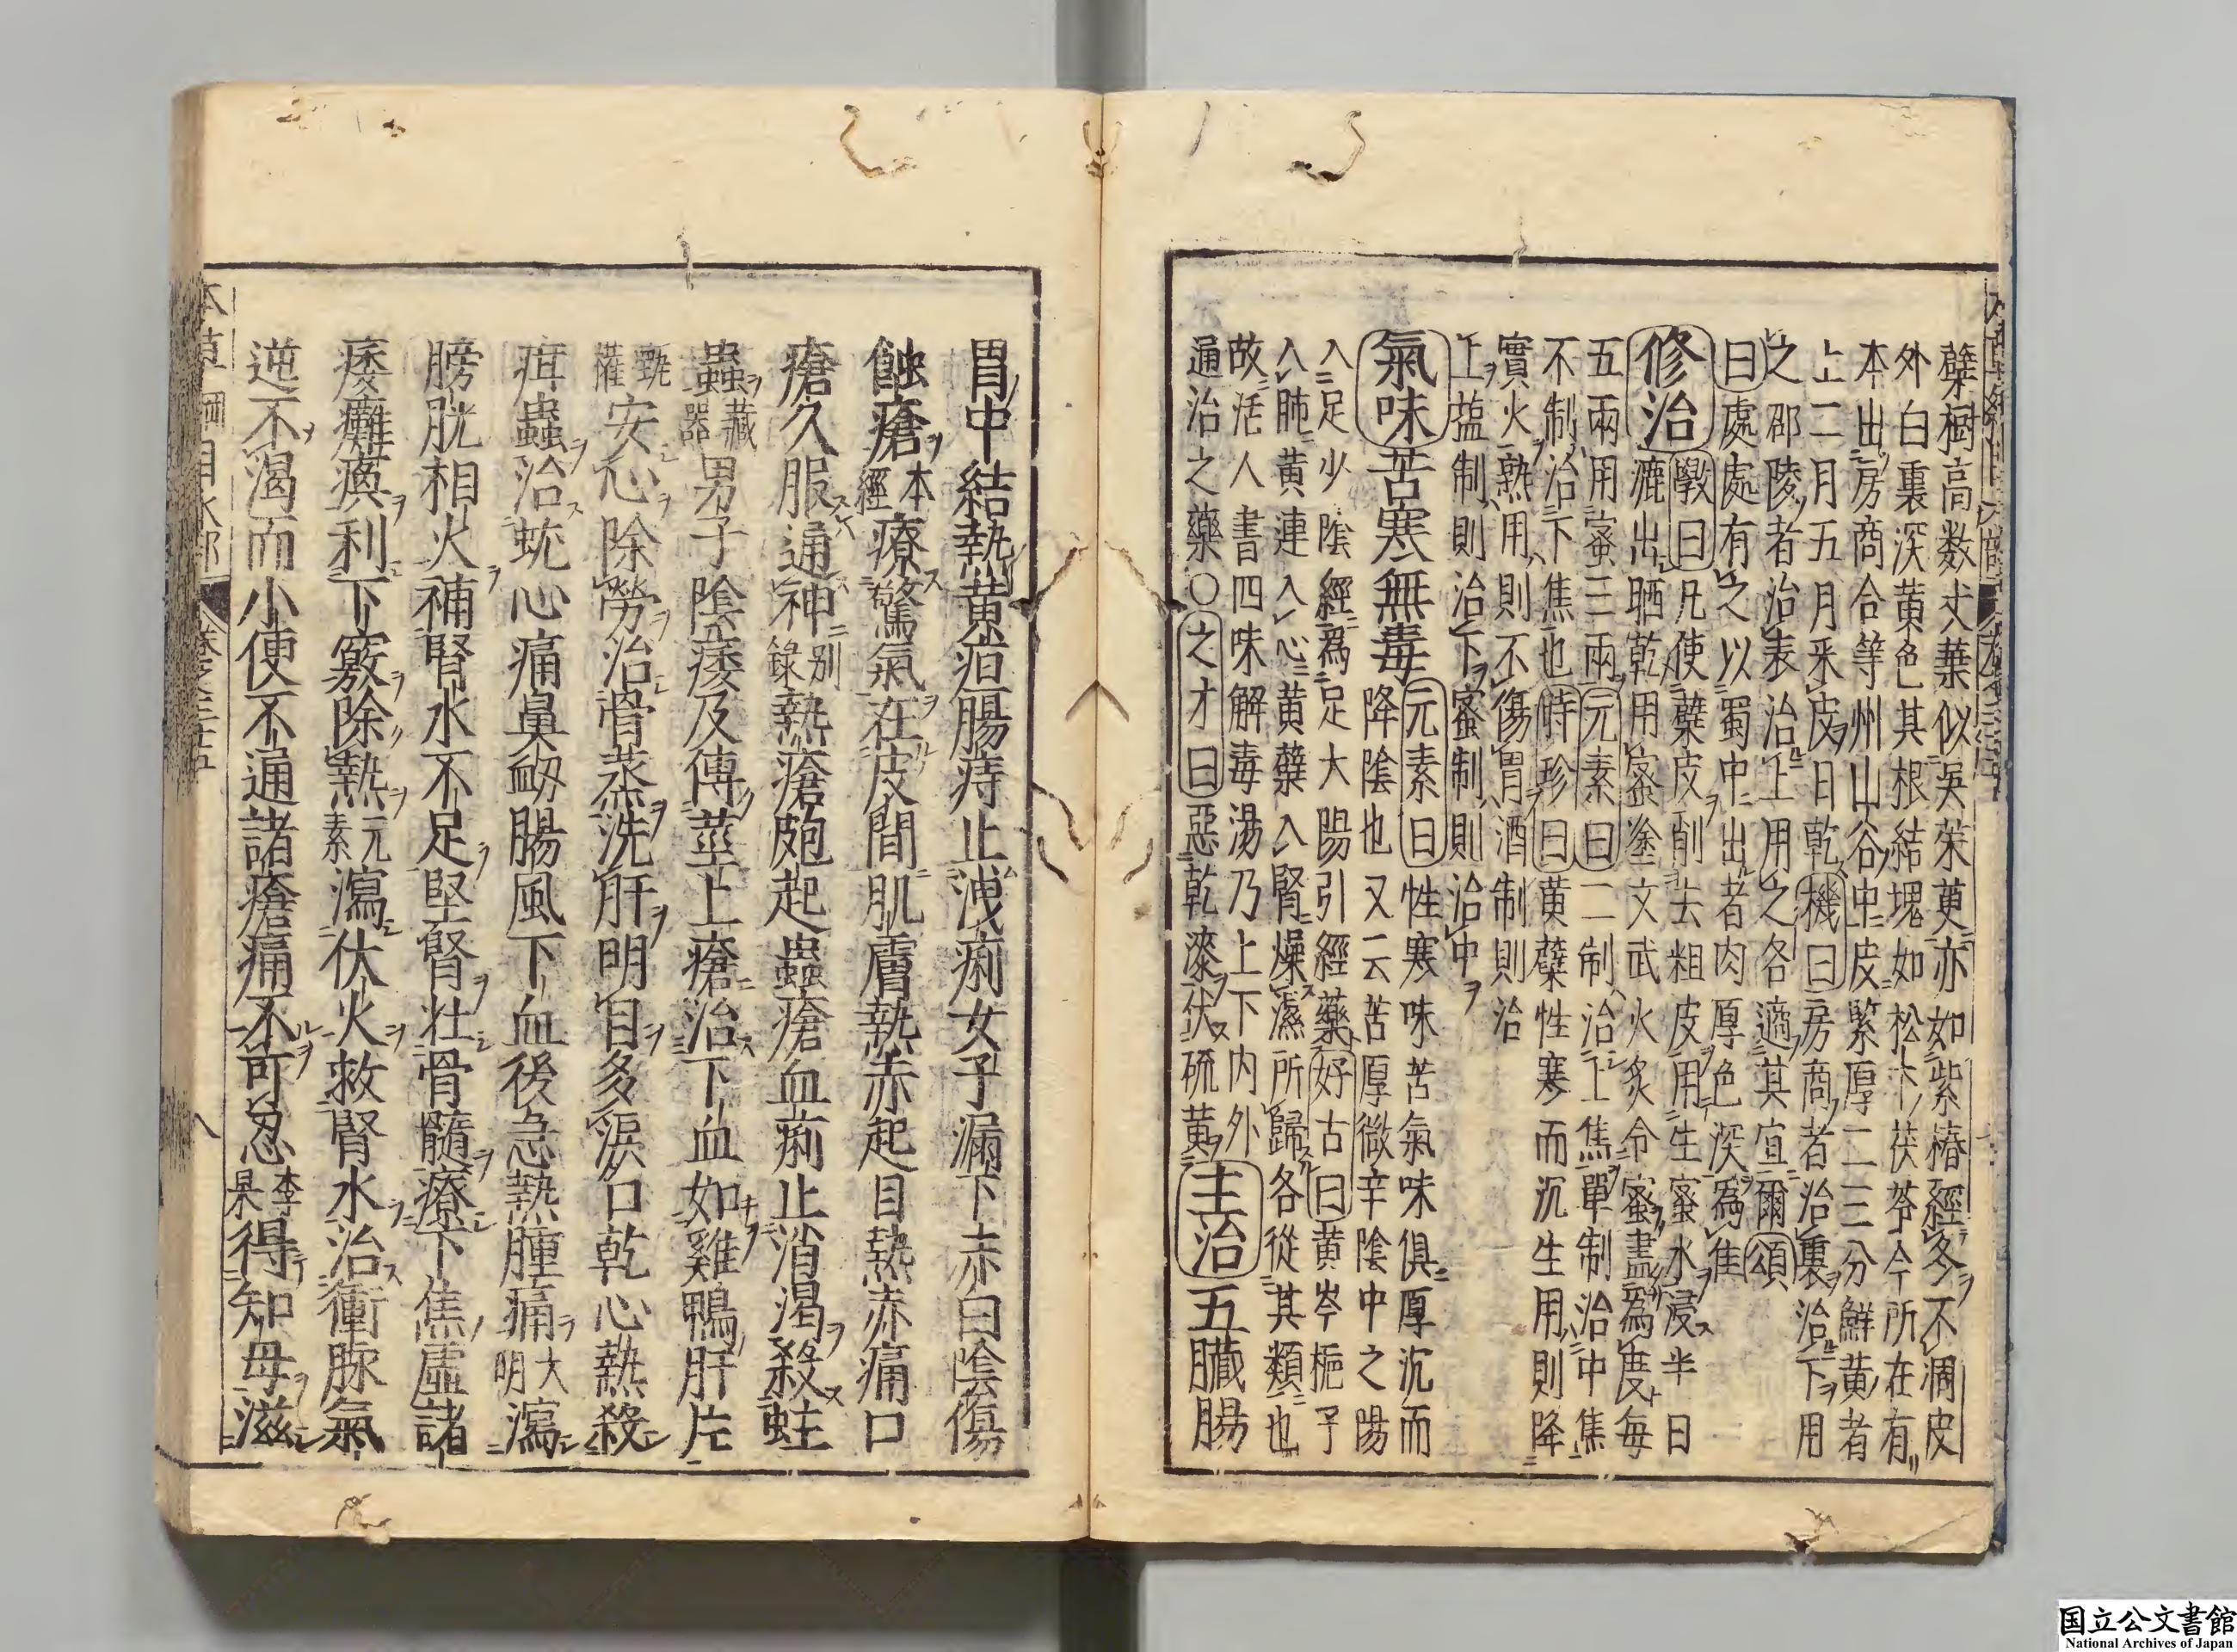 蘗樹高数丈葉似吳茱萸亦如紫椿經冬不凋皮
外白裏深黄色其根結塊如松下茯苓今所在有
本出房商合等州山谷中皮緊厚二三分鮮黄者
上二月五月釆皮日乾機曰房商者治裏治下用
之邵陵者治表治上用之各適其宜爾頌
曰處處有之以蜀中出者肉厚色深為佳
修治斅曰凡使蘗皮削去粗皮用生蜜水浸半日
漉出晒乾用蜜塗文武火炙令蜜盡為度每
五兩用蜜三兩元素曰二制治上焦單制治中焦
不制治下焦也時珍曰黄蘗性寒而沉生用則降
實火熟用則不傷胃酒制則治
上蓝制則治下蜜制則治中
氣味苦寒無毒元素曰性寒味苦氣味俱厚沉而
降陰也又云苦厚微辛陰中之陽
入足少陰經為足大陽引經藥好古曰黄岑梔子
入肺黄連入心黄蘗入腎燥濕所歸各從其類也
故活人書四味解毒湯乃上下内外
通治之藥○之才曰惡乾漆伏硫黄主治五臓腸
胃中結熱黄疸腸痔止洩痢女子漏下赤白陰傷
蝕瘡本經療驚氣在皮間肌膚熱赤起目熱赤痛口
瘡久服通神别録熱瘡皰起蟲瘡血痢止消渴殺蛀
蟲藏器男子陰痿及傅莖上瘡治下血如雞鴨肝片
甄權安心除勞治骨蒸洗肝明目多淚口乾心熱殺
疳蟲治蚘心痛鼻衂腸風下血後急熱腫痛大明瀉
膀胱相火補腎水不足堅腎壯骨髓療下焦虛諸
痿癱瘓利下竅除熱元素瀉伏火救腎水治衝脉氣
逆不渴而小便不通諸瘡痛不可忍李杲得知母滋
本草綱目木部 卷之三十五 八
国立公文書館
National Archives of Japan